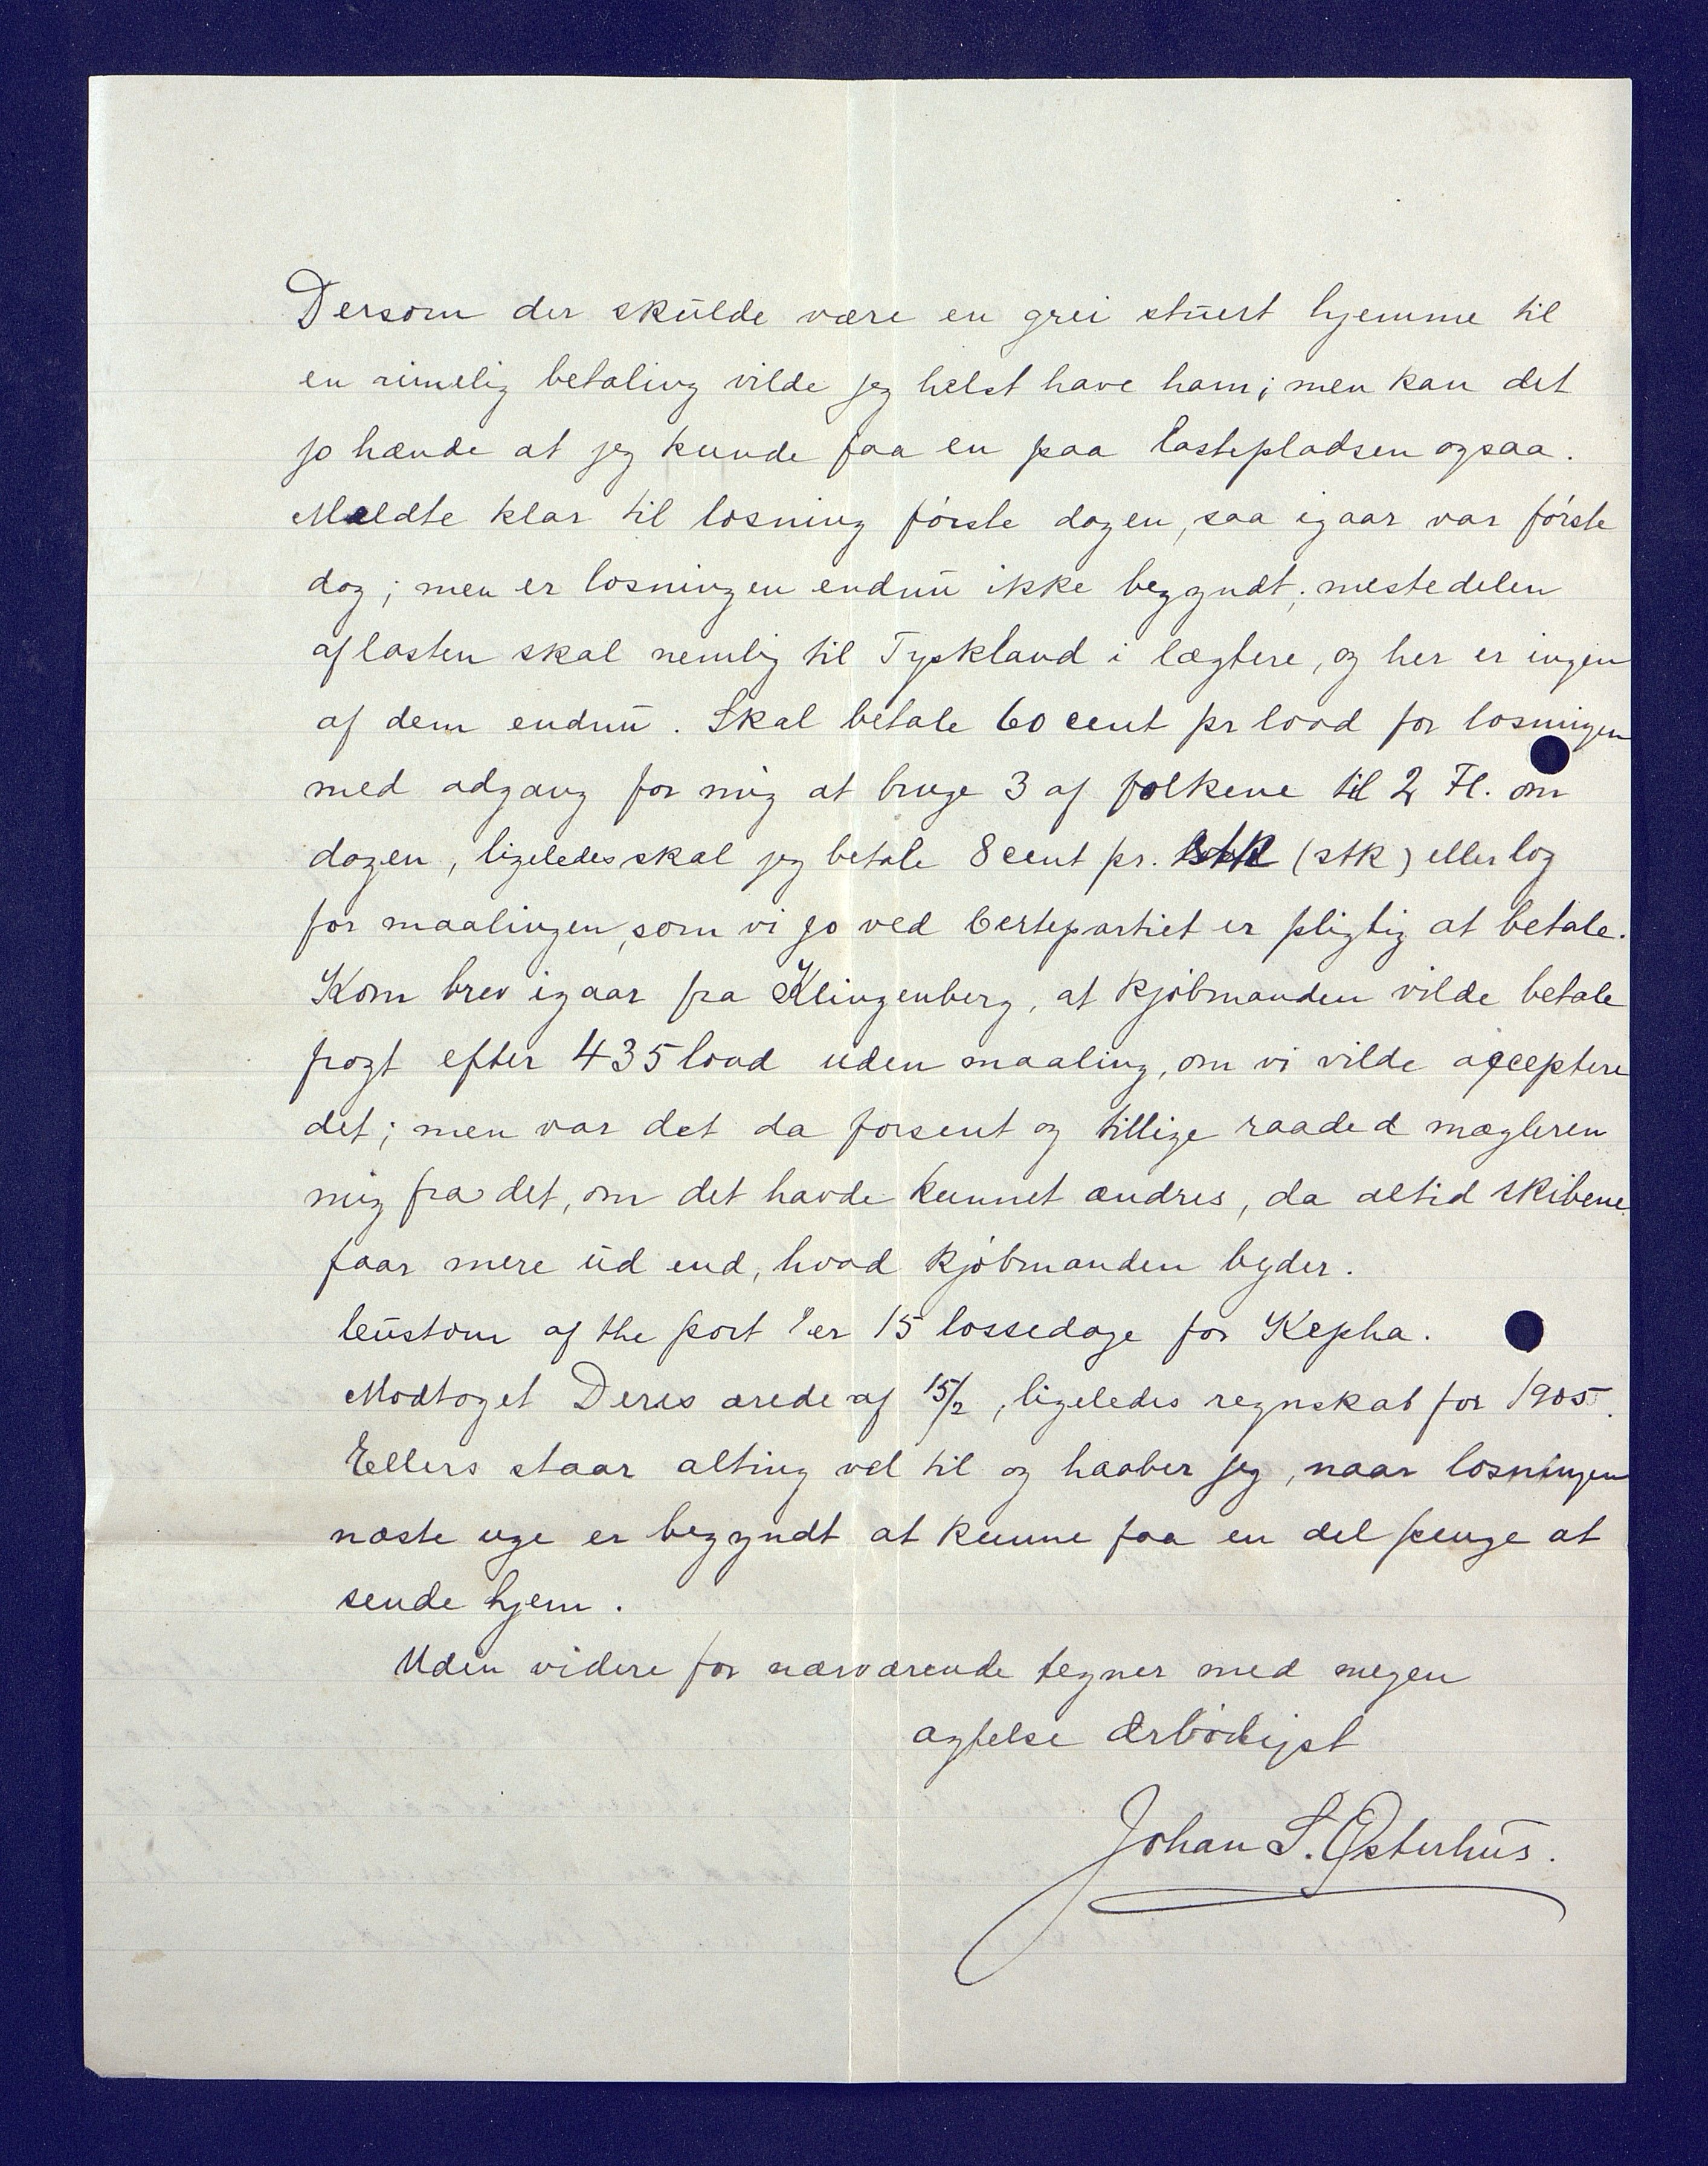 Dersom der skulde være en grei stuert hjemme til
en rimelig betaling vilde jeg helst have ham; men kan det
jo hænde at jeg kunde faa en paa lastepladsen ogsaa.
Meldte klar til losning første dagen, saa igaar var første
dag; men er losningen endnu ikke begyndt; mestedelen
af lasten skal nemlig til Tyskland i lægtere, og her er ingen
af dem endnu. Skal betale 60 cent pr load for losningen
med adgang for mig at bruge 3 af folkene til 2 Fl. om
dagen, ligeledes skal jeg betale 8 cent pr. stk (stk) eller log
for maalingen, som vi jo ved certepartiet er pligtig at betale.
Kom brev igaar fra Klingenberg, at kjøbmanden vilde betale
fragt efter 435 load uden maaling, om vi vilde acceptere
det; men var det da forsent og tillige raaded mægleren
mig fra det, om det havde kunnet ændres, da altid skibene
faar mere ud end, hvad kjøbmanden byder.
Custom of the port er 15 lossedage for Kepha.
Modtaget Deres ærede af 15/2, ligeledes regnskab for 1905.
Ellers staar alting vel til og haaber jeg, naar losningen
næste uge er begyndt at kunne faa en del penge at
sende hjem.
Uden videre for nærværende tegner med megen
agtelse Ærbødigst
Johan S. Østerhus.